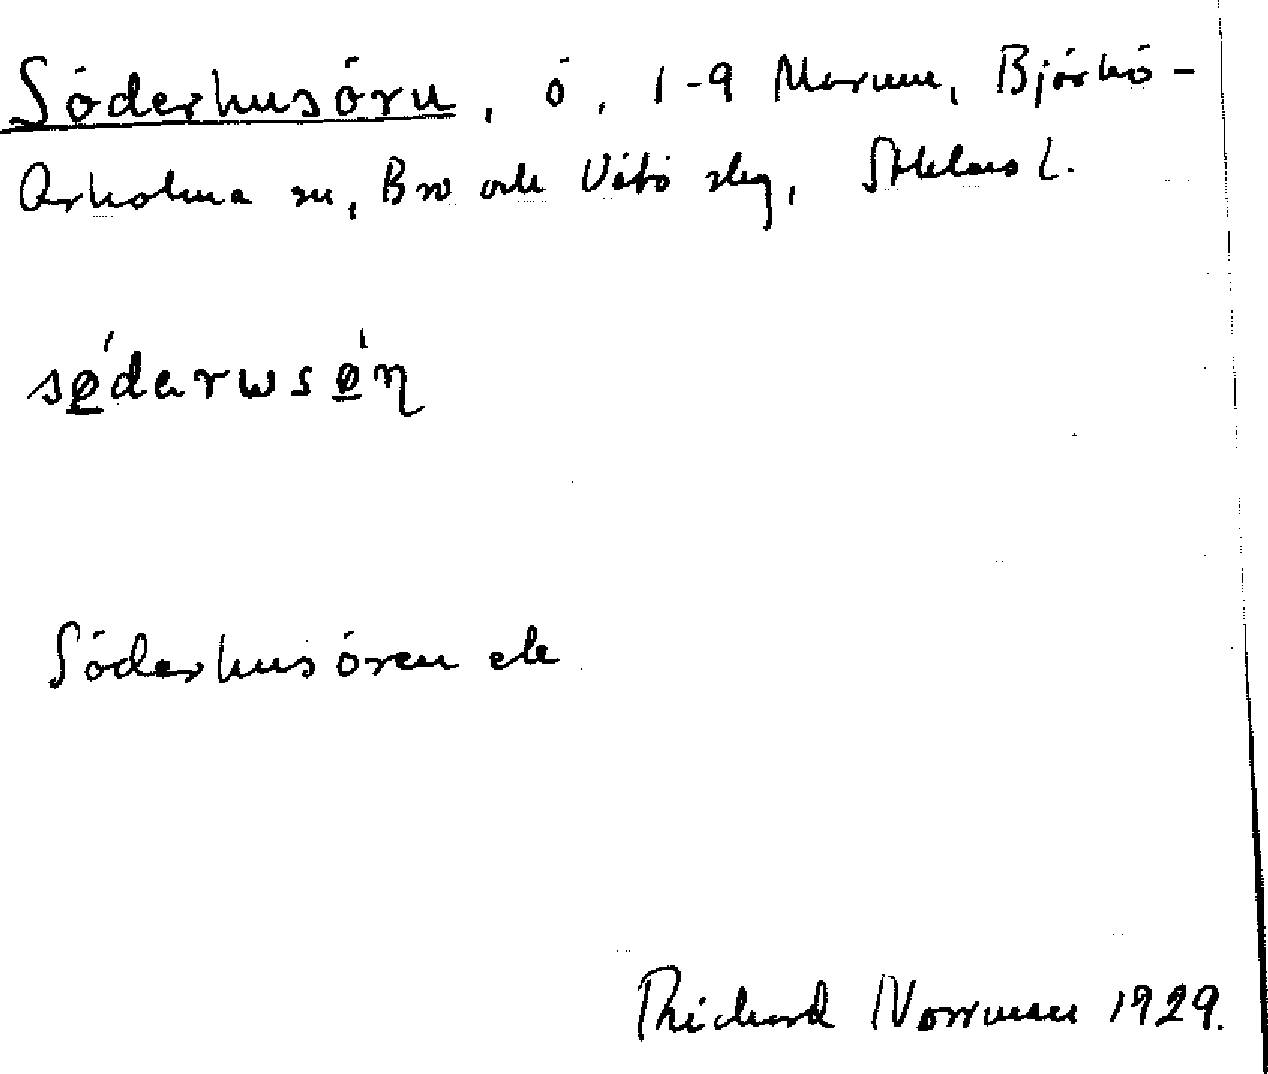 Söderhusörn, ö, 1-9 Marum, Björkö-
Arholma sn, Bro och Vätö skg, Sthlms l.
sǿ̲darwsǿ̲η
Söderhusören ek
Richard Norrman 1929.